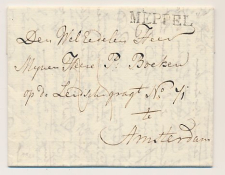 MEPPEL
Den Wel Edelen Heer
Mynen Heere P. Boeken
op de Leidschegragt No 71
te
Amsterdam